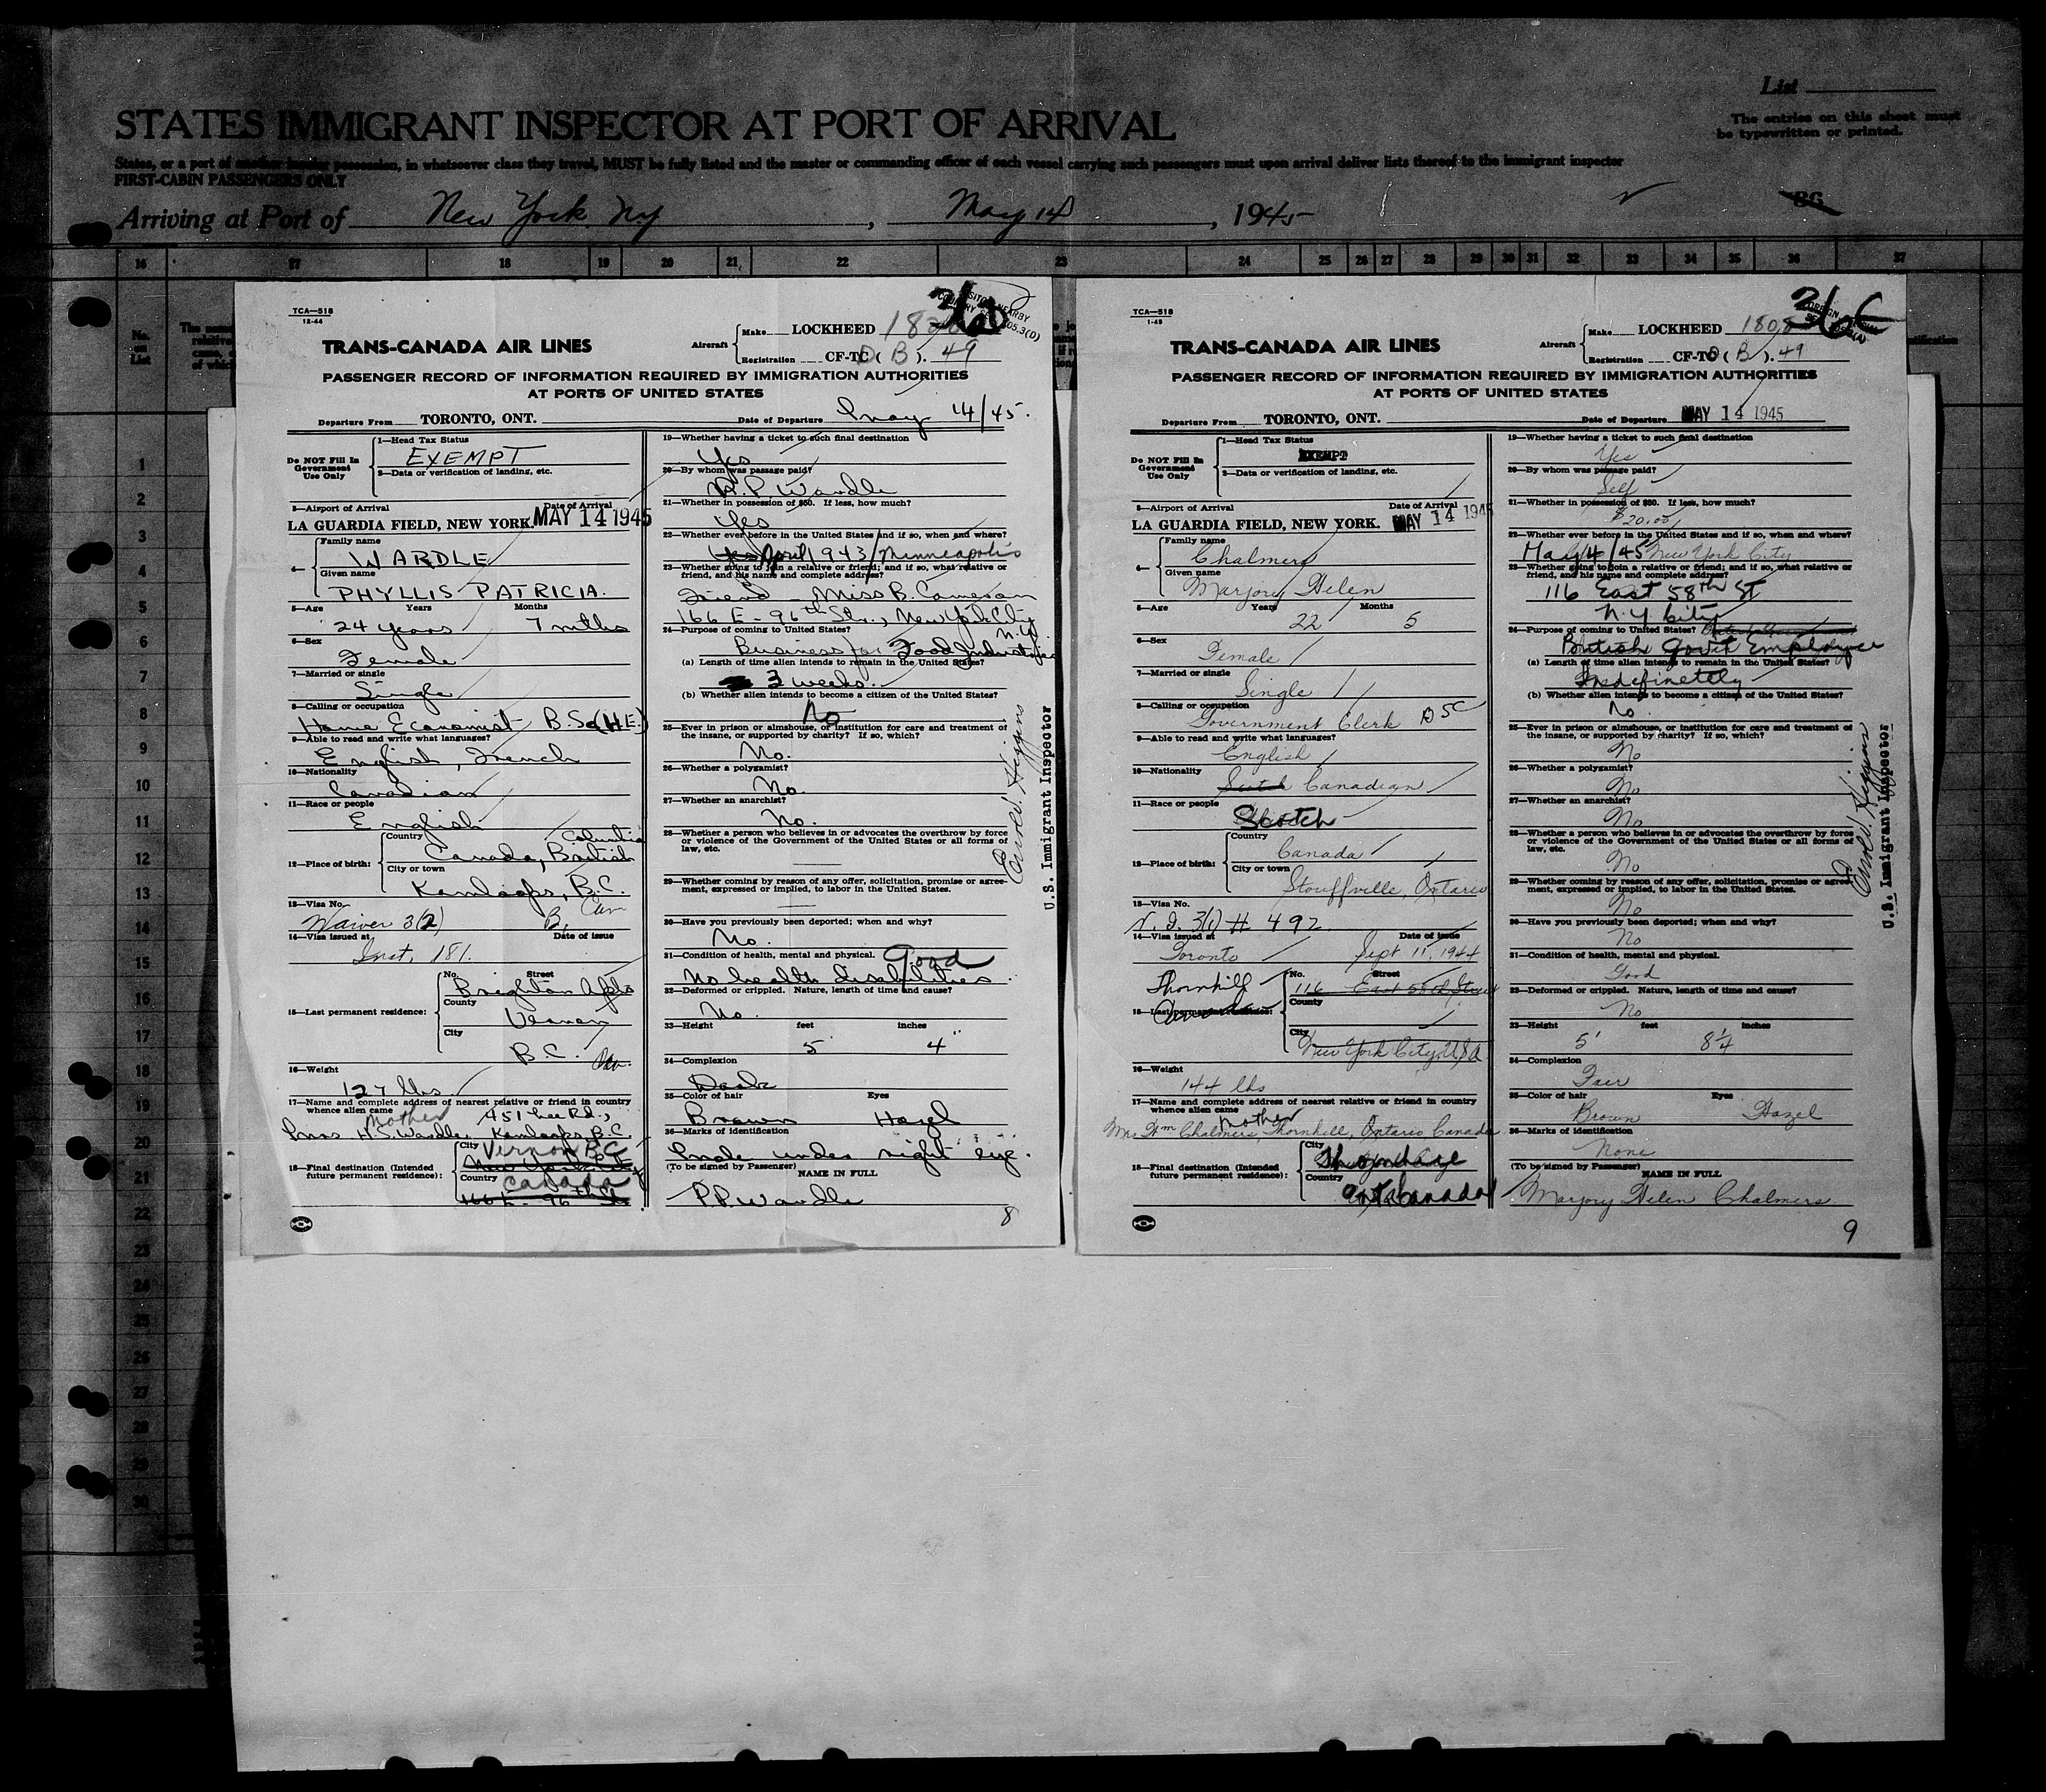 List
STATES IMMIGRANT INSPECTOR AT PORT OF ARRIVAL
The entries on this sheet must
be typewritten or printed.
States, or a port of another insular possession, in whatsoever class they travel, MUST be fully listed and the master or commanding officer of each vessel carrying such passengers must upon arrival deliver lists thereof to the immigrant inspector
FIRST-CABIN PASSENGERS ONLY
Arriving at Port of New York NY, May 14, 1945
16 17 18 19 20 21 22 23 24 25 26 27 28 29 30 31 32 33 34 35 36 37
No. on List
1
2
3
4
5
6
7
8
9
10
11
12
13
14
15
16
17
18
19
20
21
22
23
24
25
26
27
28
29
30
TCA—518
12-44
Aircraft Make LOCKHEED
Registration CF-TC ( B ). 49
TRANS-CANADA AIR LINES
PASSENGER RECORD OF INFORMATION REQUIRED BY IMMIGRATION AUTHORITIES
AT PORTS OF UNITED STATES
Departure From TORONTO, ONT. Date of Departure May 14/45.
Do NOT Fill In Government Use Only
1—Head Tax Status
EXEMPT
2—Data or verification of landing, etc.
3—Airport of Arrival Date of Arrival
LA GUARDIA FIELD, NEW YORK. MAY 14 1945
4— Family name
WARDLE
Given name
PHYLLIS PATRICIA.
5—Age Years Months
24 years 7 mths
6—Sex
Female
7—Married or single
Single
8—Calling or occupation
Home Economist B.Sc(H.E.)
9—Able to read and write what languages?
English, French
10—Nationality
Canadian
11—Race or people
English
12—Place of birth: Country
Canada, British Columbia
City or town
Kamloops, B.C.
13—Visa No.
Waiver 3(2)
14—Visa issued at Date of issue
Inst. 181.
15—Last permanent residence: No. Street
Brighton Apts
County
Vernon
City
B.C.
16—Weight
127 lbs.
17—Name and complete address of nearest relative or friend in country
whence alien came
Mother 451 Lee Rd.,
Mrs H.S. Wardle, Kamloops, B.C.
18—Final destination (Intended
future permanent residence): City
Vernon B.C.
New York City
Country
Canada
166 E - 96th St
19—Whether having a ticket to such final destination
Yes
20—By whom was passage paid?
P. Wardle
21—Whether in possession of $50. If less, how much?
Yes
22—Whether ever before in the United States and if so, when and where?
Yes April 1943 / Minneapolis
23—Whether going to join a relative or friend; and if so, what relative or
friend, and his name and complete address?
Friend - Miss B. Cameron
166 E - 96th Str., New York City N.Y.
24—Purpose of coming to United States?
Business for Food Industries
(a) Length of time alien intends to remain in the United States?
3 weeks.
(b) Whether alien intends to become a citizen of the United States?
No
25—Ever in prison or almshouse, or institution for care and treatment of
the insane, or supported by charity? If so, which?
No.
26—Whether a polygamist?
No.
27—Whether an anarchist?
No.
28—Whether a person who believes in or advocates the overthrow by force
or violence of the Government of the United States or all forms of
law, etc.
29—Whether coming by reason of any offer, solicitation, promise or agree-
ment, expressed or implied, to labor in the United States.
30—Have you previously been deported; when and why?
No.
31—Condition of health, mental and physical. Good
No health disabilities
32—Deformed or crippled. Nature, length of time and cause?
No.
33—Height feet inches
5' 4"
34—Complexion
Dark
35—Color of hair Eyes
Brown Hazel
36—Marks of identification
Mole under right eye.
(To be signed by Passenger) NAME IN FULL
P.P. Wardle
8
U.S. Immigrant Inspector
TCA—518
1-45
Aircraft Make LOCKHEED 1808
Registration CF-TC ( B ). 49
TRANS-CANADA AIR LINES
PASSENGER RECORD OF INFORMATION REQUIRED BY IMMIGRATION AUTHORITIES
AT PORTS OF UNITED STATES
Departure From TORONTO, ONT. Date of Departure MAY 14 1945
Do NOT Fill In Government Use Only
1—Head Tax Status
EXEMPT
2—Data or verification of landing, etc.
3—Airport of Arrival Date of Arrival
LA GUARDIA FIELD, NEW YORK. MAY 14 1945
4— Family name
Chalmers
Given name
Marjory Helen
5—Age Years Months
22 5
6—Sex
Female
7—Married or single
Single
8—Calling or occupation
Government Clerk
9—Able to read and write what languages?
English
10—Nationality
Scotch Canadian
11—Race or people
Scotch
12—Place of birth: Country
Canada
City or town
Stouffville, Ontario
13—Visa No.
N.I. 3(1) # 492
14—Visa issued at Date of issue
Toronto Sept 11, 1944
Thornhill
15—Last permanent residence: No. Street
116 East 58th Street
County
City
New York City, USA
16—Weight
144 lbs
17—Name and complete address of nearest relative or friend in country
whence alien came
Mother
Mrs Wm Chalmers Thornhill, Ontario Canada
18—Final destination (Intended
future permanent residence): City
Thornhill
Country
Ont. Canada
19—Whether having a ticket to such final destination
Yes
20—By whom was passage paid?
Self
21—Whether in possession of $50. If less, how much?
$20.00
22—Whether ever before in the United States and if so, when and where?
May 4/45 New York City
23—Whether going to join a relative or friend; and if so, what relative or
friend, and his name and complete address?
116 East 58th St
N.Y City
24—Purpose of coming to United States?
British Gov't Employee
(a) Length of time alien intends to remain in the United States?
Indefinetely
(b) Whether alien intends to become a citizen of the United States?
No
25—Ever in prison or almshouse, or institution for care and treatment of
the insane, or supported by charity? If so, which?
No
26—Whether a polygamist?
No
27—Whether an anarchist?
No
28—Whether a person who believes in or advocates the overthrow by force
or violence of the Government of the United States or all forms of
law, etc.
No
29—Whether coming by reason of any offer, solicitation, promise or agree-
ment, expressed or implied, to labor in the United States.
No
30—Have you previously been deported; when and why?
No
31—Condition of health, mental and physical.
Good
32—Deformed or crippled. Nature, length of time and cause?
No
33—Height feet inches
5' 8¼
34—Complexion
Fair
35—Color of hair Eyes
Brown Hazel
36—Marks of identification
None
(To be signed by Passenger) NAME IN FULL
Marjory Helen Chalmers
9
U.S. Immigrant Inspector